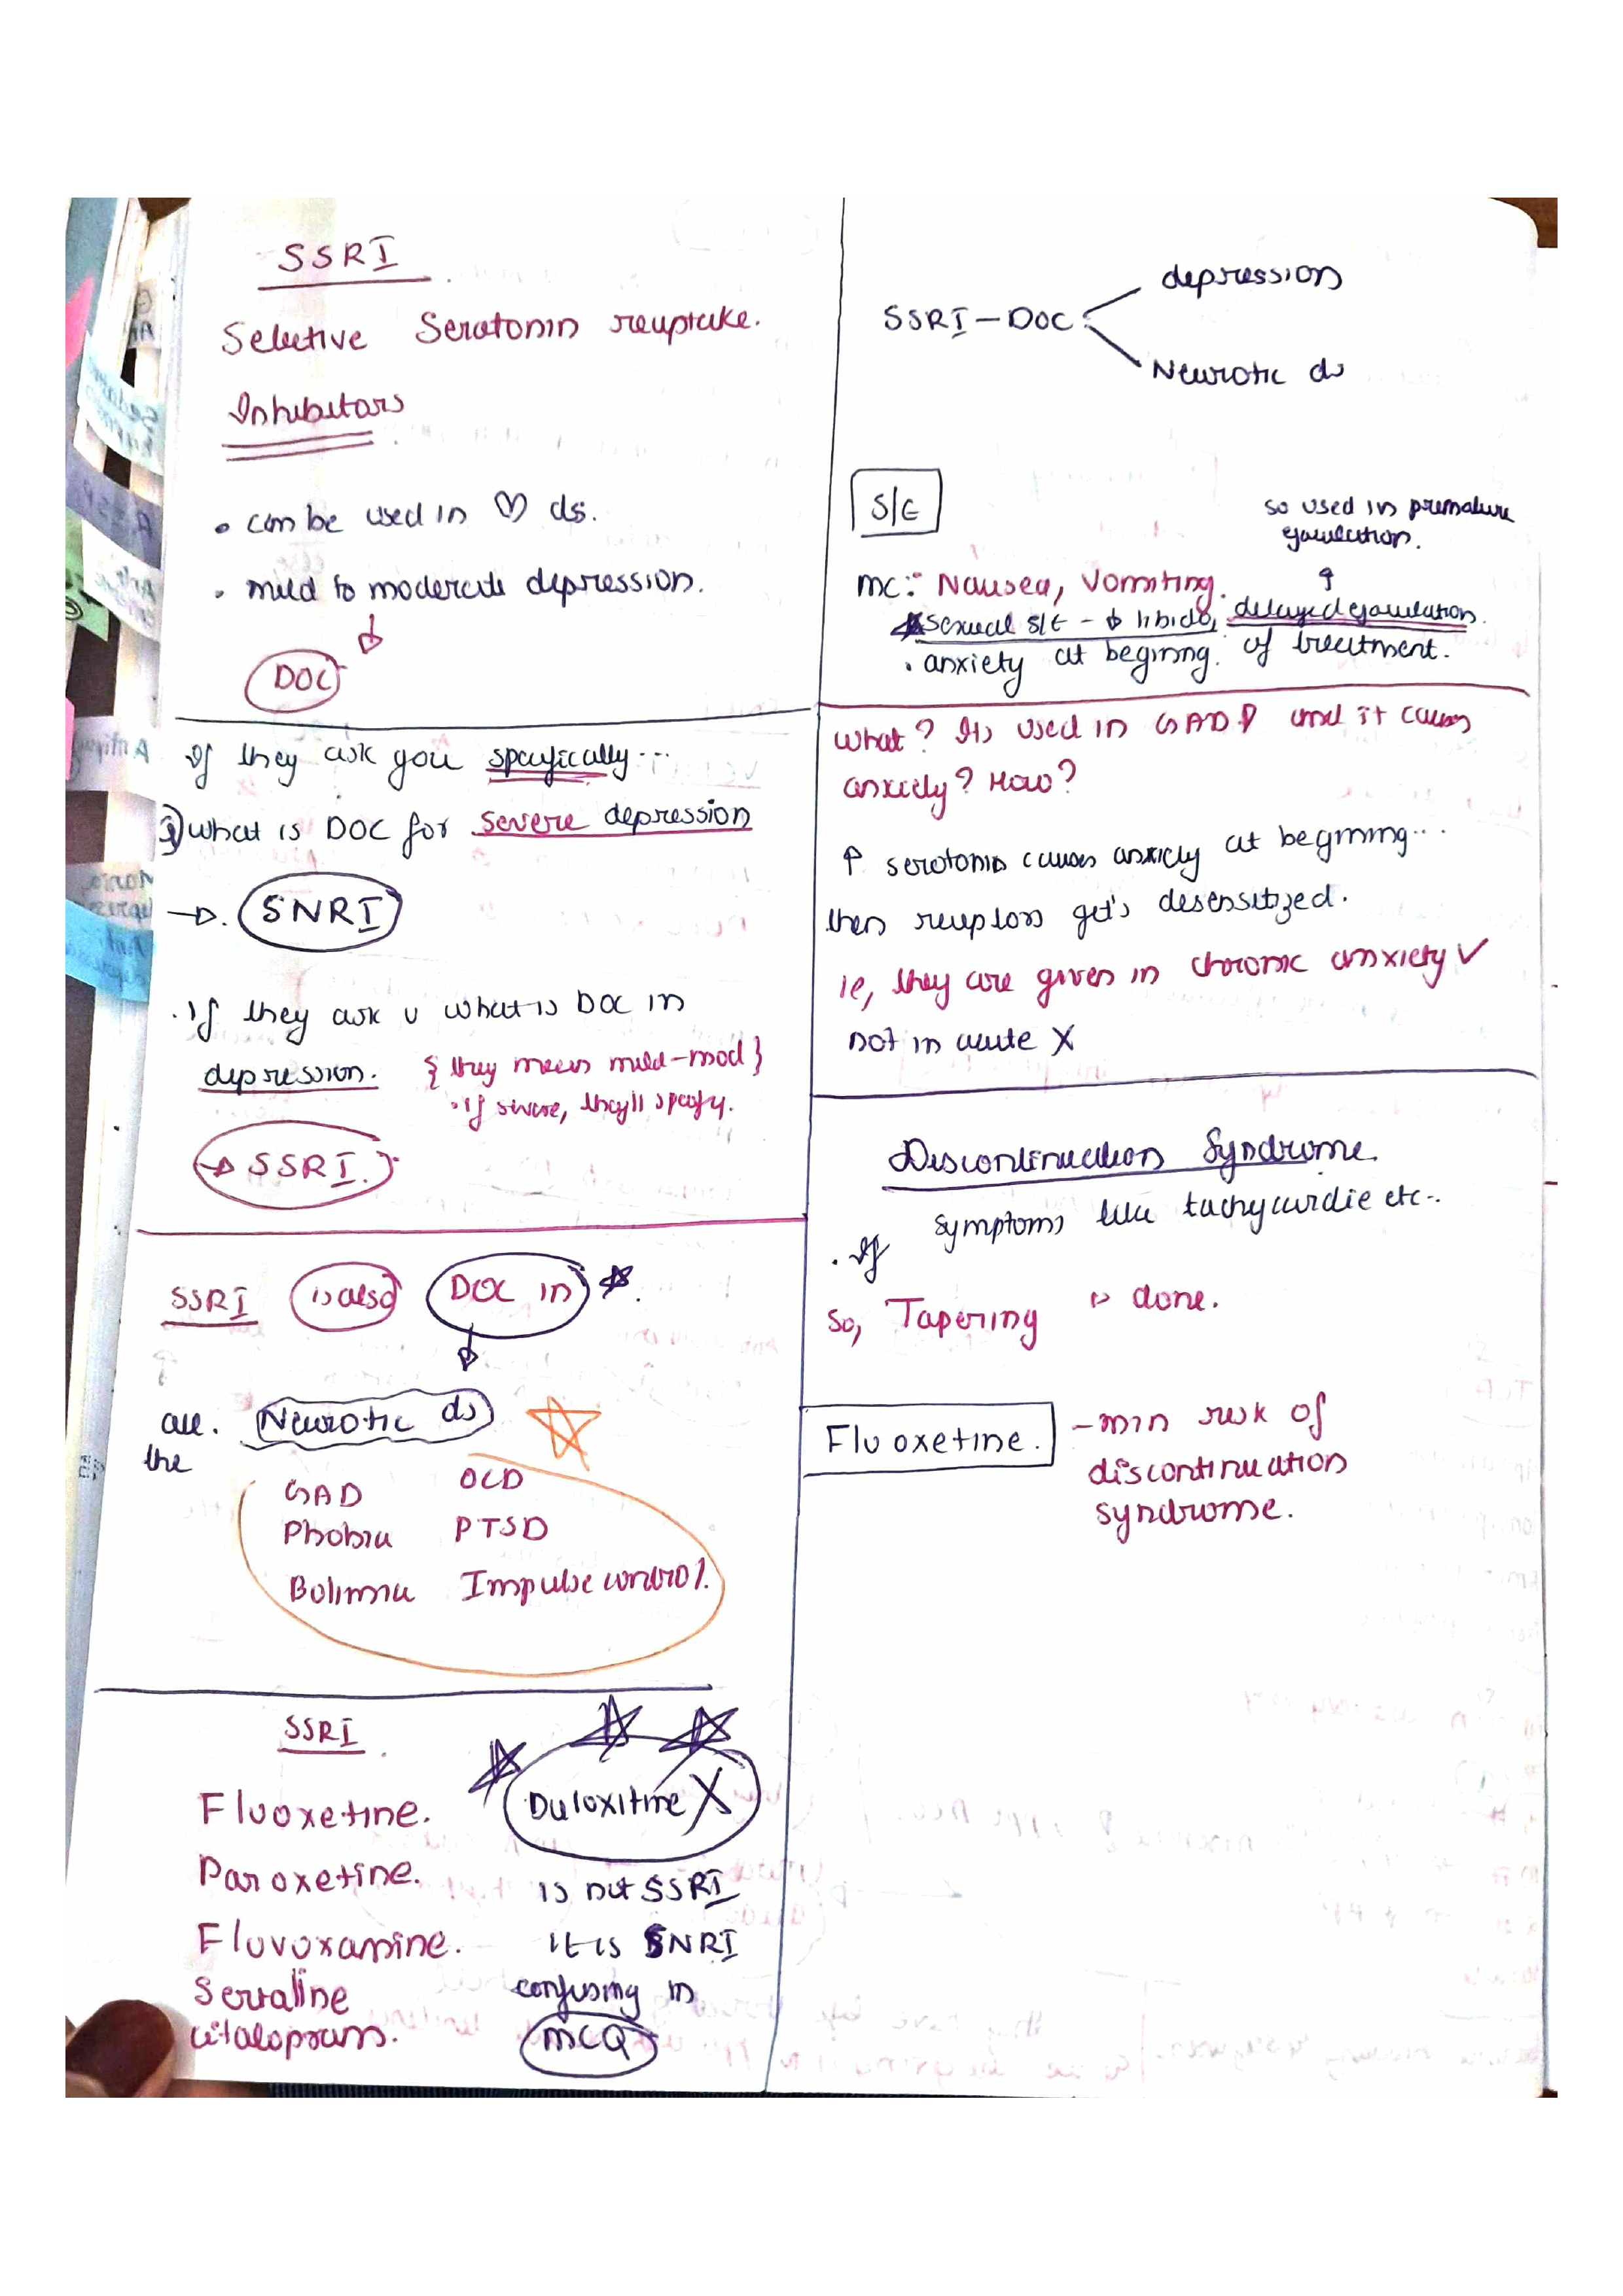 SSRI
Selective Seratonin reuptake.
Inhibitors
• can be used in ♡ ds.
• mild to moderate depression.
↓
DOC
If they ask you specifically...
① what is DOC for severe depression
→ SNRI
. If they ask u what is DOC in
depression. { they mean mild-mod }
• If severe, they'll specify.
→ SSRI.
SSRI is also DOC in
↓
all. Neurotic ds
the
GAD OCD
Phobia PTSD
Bolimia Impulse control.
SSRI
Fluoxetine.
Paroxetine.
Fluvoxamine.
Sertaline
citalopram.
Duloxitine X
is not SSRI
it is SNRI
confusing in
MCQ
SSRI – DOC
depression
Neurotic ds
S/E
so used in premature
ejaculation.
↑
mc: Nausea, Vomiting.
sexual S/E - ↓ libido, delayed ejaculation.
. anxiety at begining. of treatment.
what? Its used in GAD and it causes
anxiety? How?
↑ serotonin causes anxiety at begining...
then get's desensitized.
ie, they are given in chronic anxiety ✓
not in acute X
Discontinuation Syndrome.
symptoms like tachycardie etc..
. If
so, Tapering is done.
Fluoxetine. – min risk of
discontinuation
syndrome.